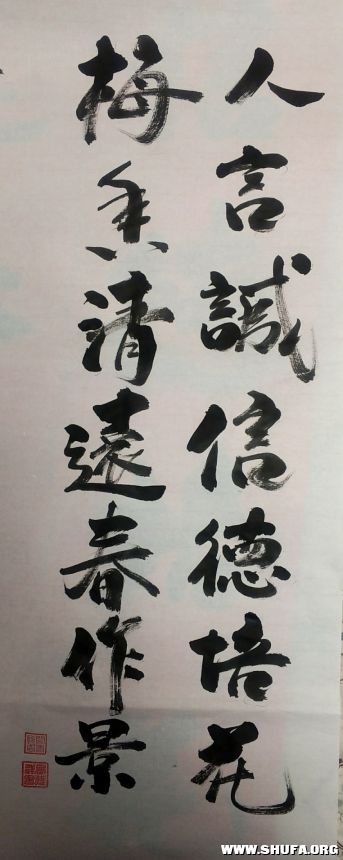 人言誠信德培花
梅香清遠春作景
WWW.SHUFA.ORG